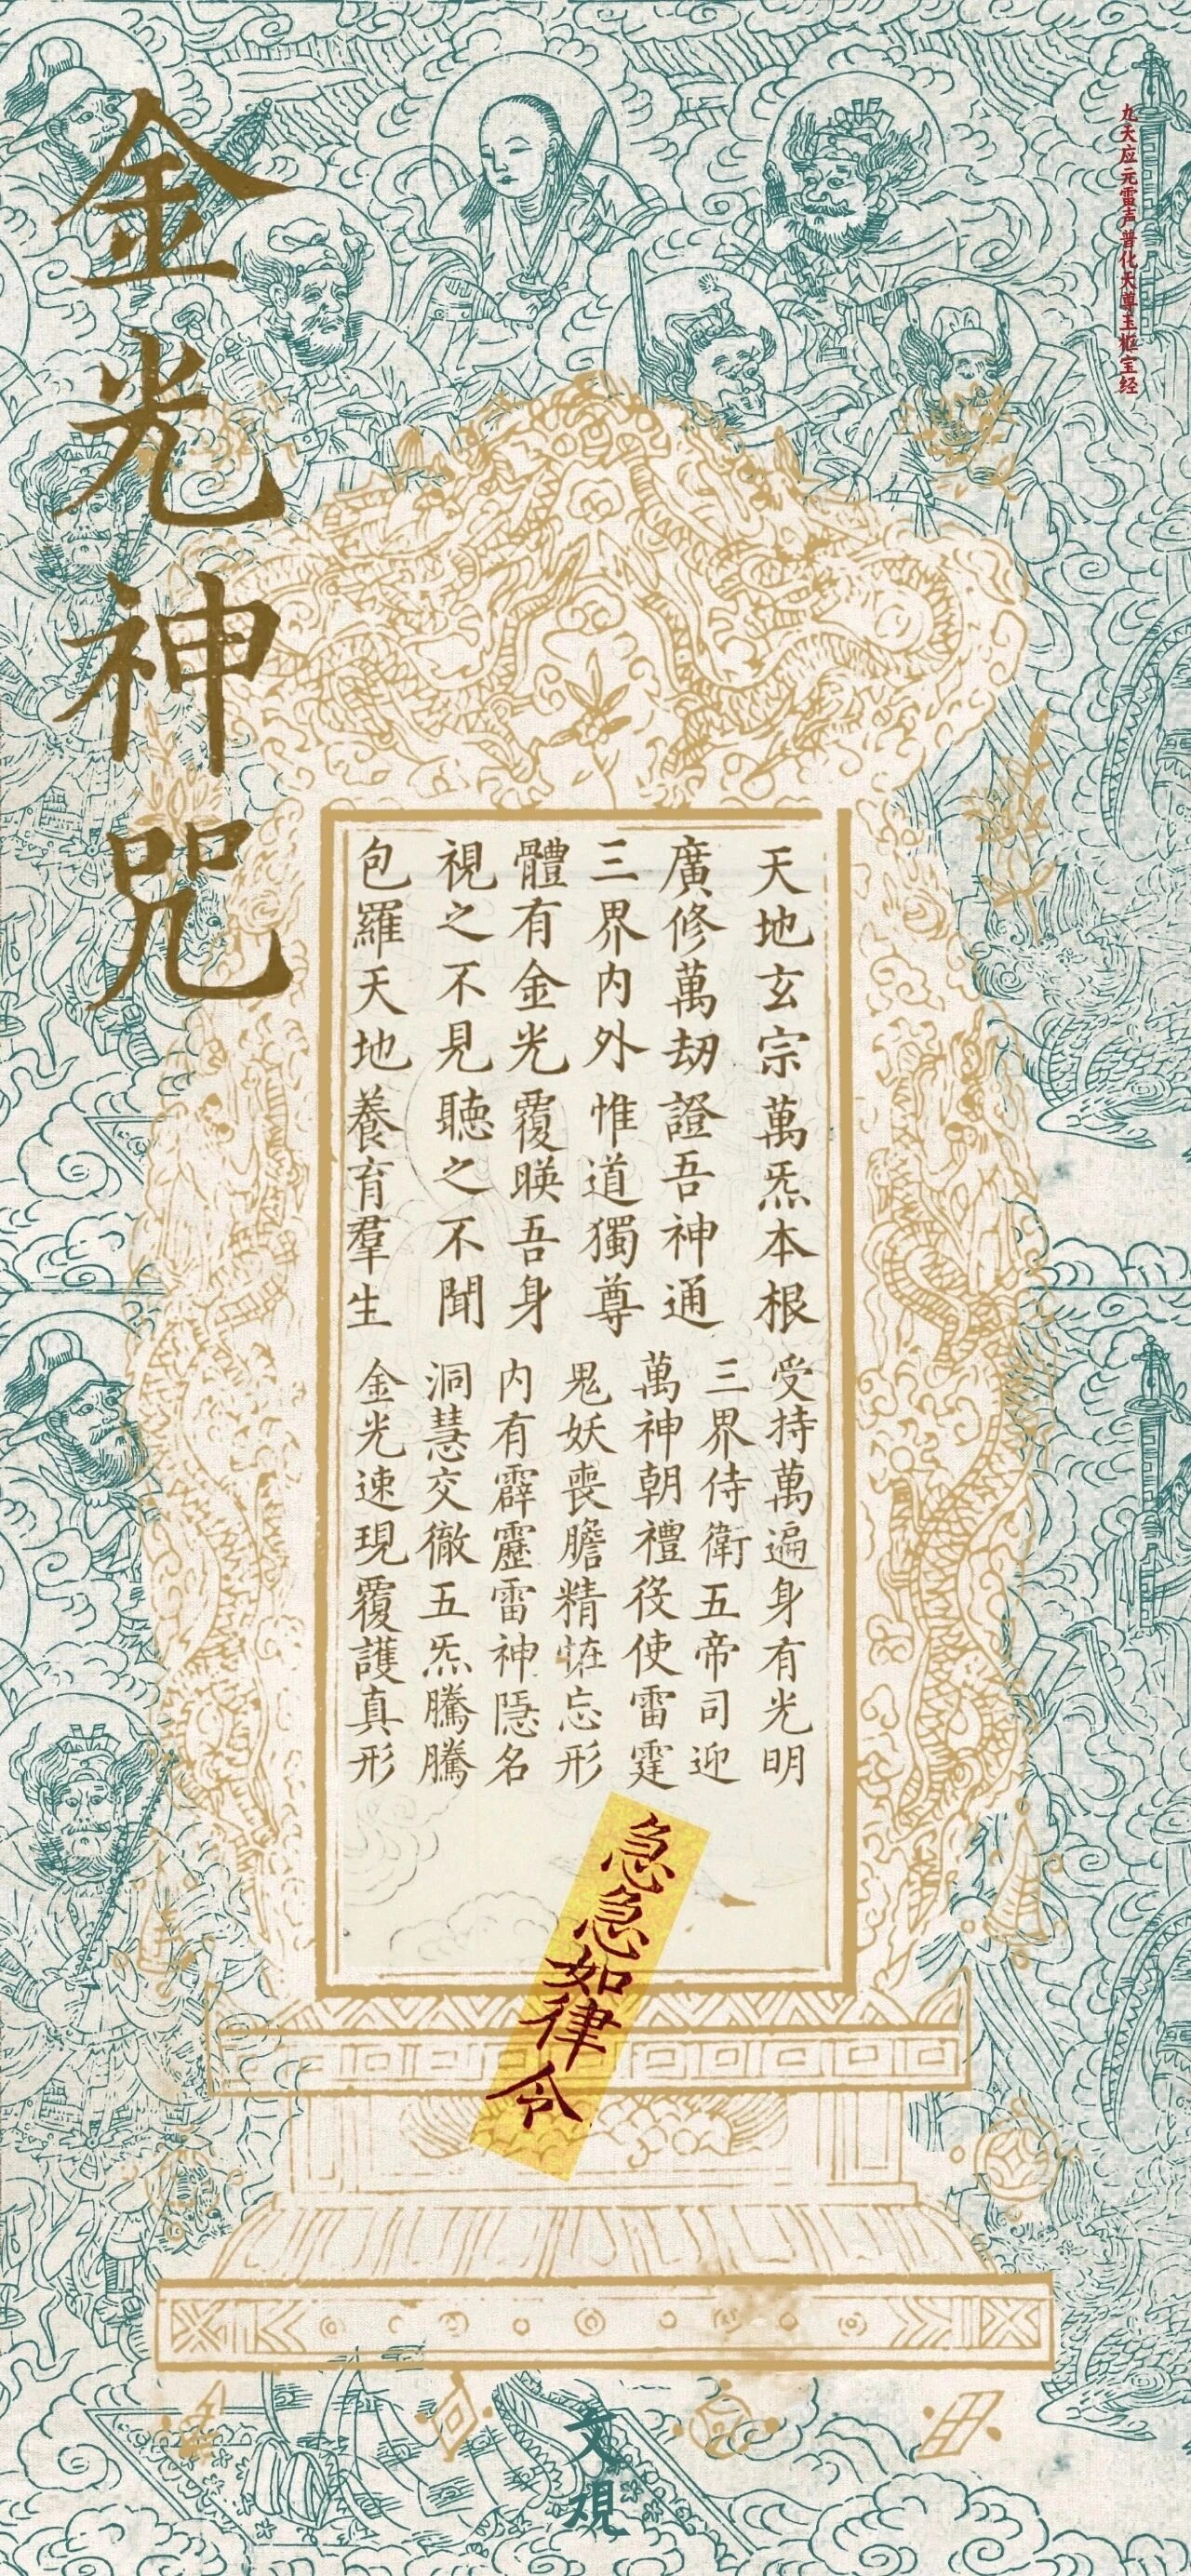 九天应元雷声普化天尊玉枢宝经
金光神咒
天地玄宗萬炁本根
廣修萬劫證吾神通
三界内外惟道獨尊
體有金光覆暎吾身
視之不見聽之不聞
包羅天地養育羣生
受持萬遍身有光明
三界侍衛五帝司迎
萬神朝禮役使雷霆
鬼妖喪膽精恠忘形
内有霹靂雷神隱名
洞慧交徹五炁騰騰
金光速現覆護真形
急急如律令
文規